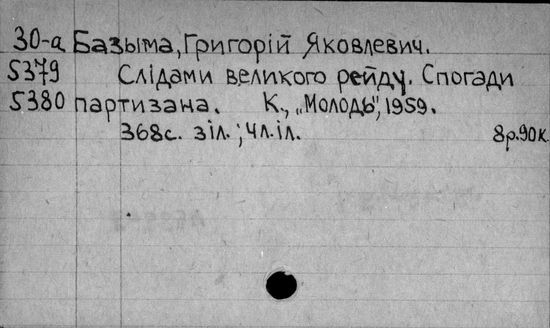 30-а Базыма, Григорій Яковлевич.
5379 Слідами великого рейду. Спогади
5380 партизана. К., „Молодь", 1959.
368с. зіл.; 4л.іл. 8р.90к.